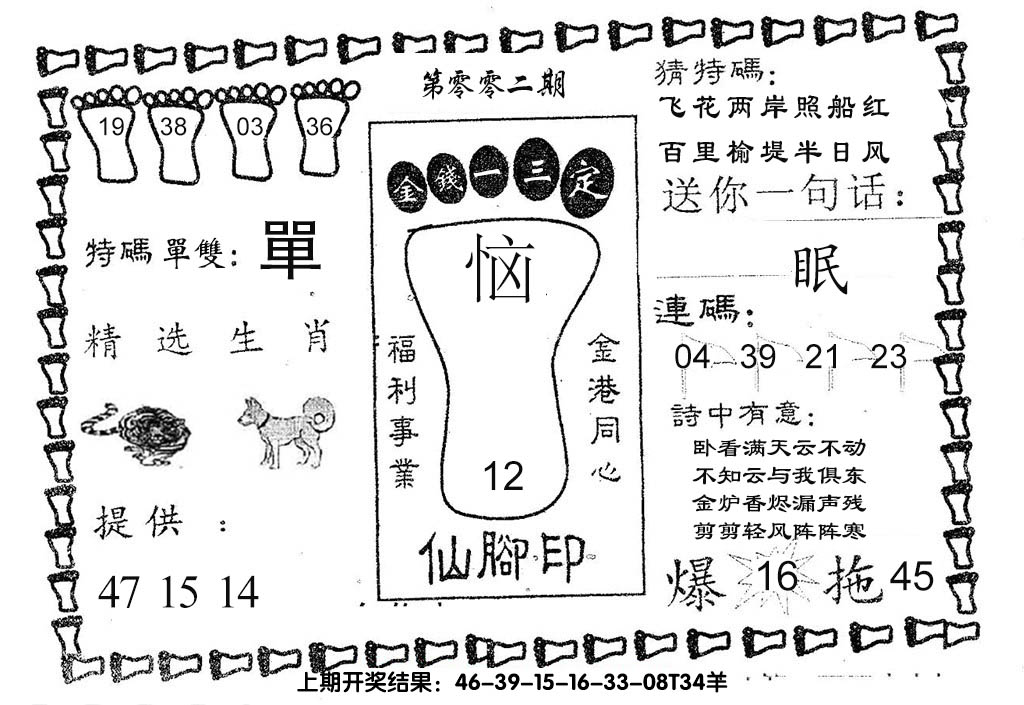 第零零二期
19 38 03 36
特碼單雙：單
精选生肖
提供：
47 15 14
金錢一三定
恼
福利事業
金港同心
12
仙腳印
猜特碼：
飞花两岸照船红
百里榆堤半日风
送你一句话：
眠
連碼：
04 39 21 23
詩中有意：
卧看满天云不动
不知云与我俱东
金炉香烬漏声残
剪剪轻风阵阵寒
爆 16 拖 45
上期开奖结果：46-39-15-16-33-08T34羊